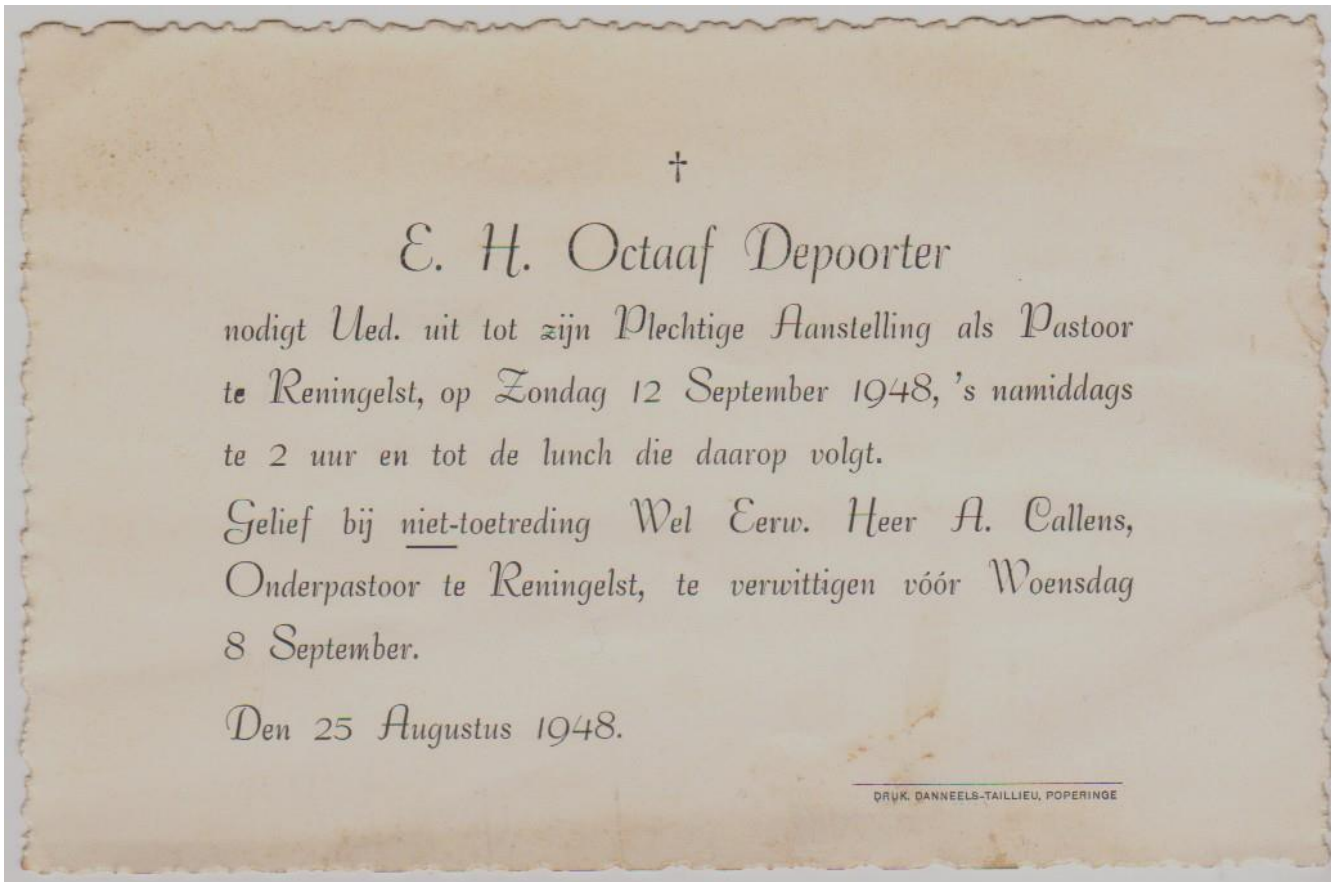 †
E. H. Octaaf Depoorter
nodigt Ued. uit tot zijn Plechtige Aanstelling als Pastoor
te Reningelst, op Zondag 12 September 1948, 's namiddags
te 2 uur en tot de lunch die daarop volgt.
Gelief bij niet-toetreding Wel Eerw. Heer A. Callens,
Onderpastoor te Reningelst, te verwittigen vóór Woensdag
8 September.
Den 25 Augustus 1948.
DRUK. DANNEELS-TAILLIEU, POPERINGE